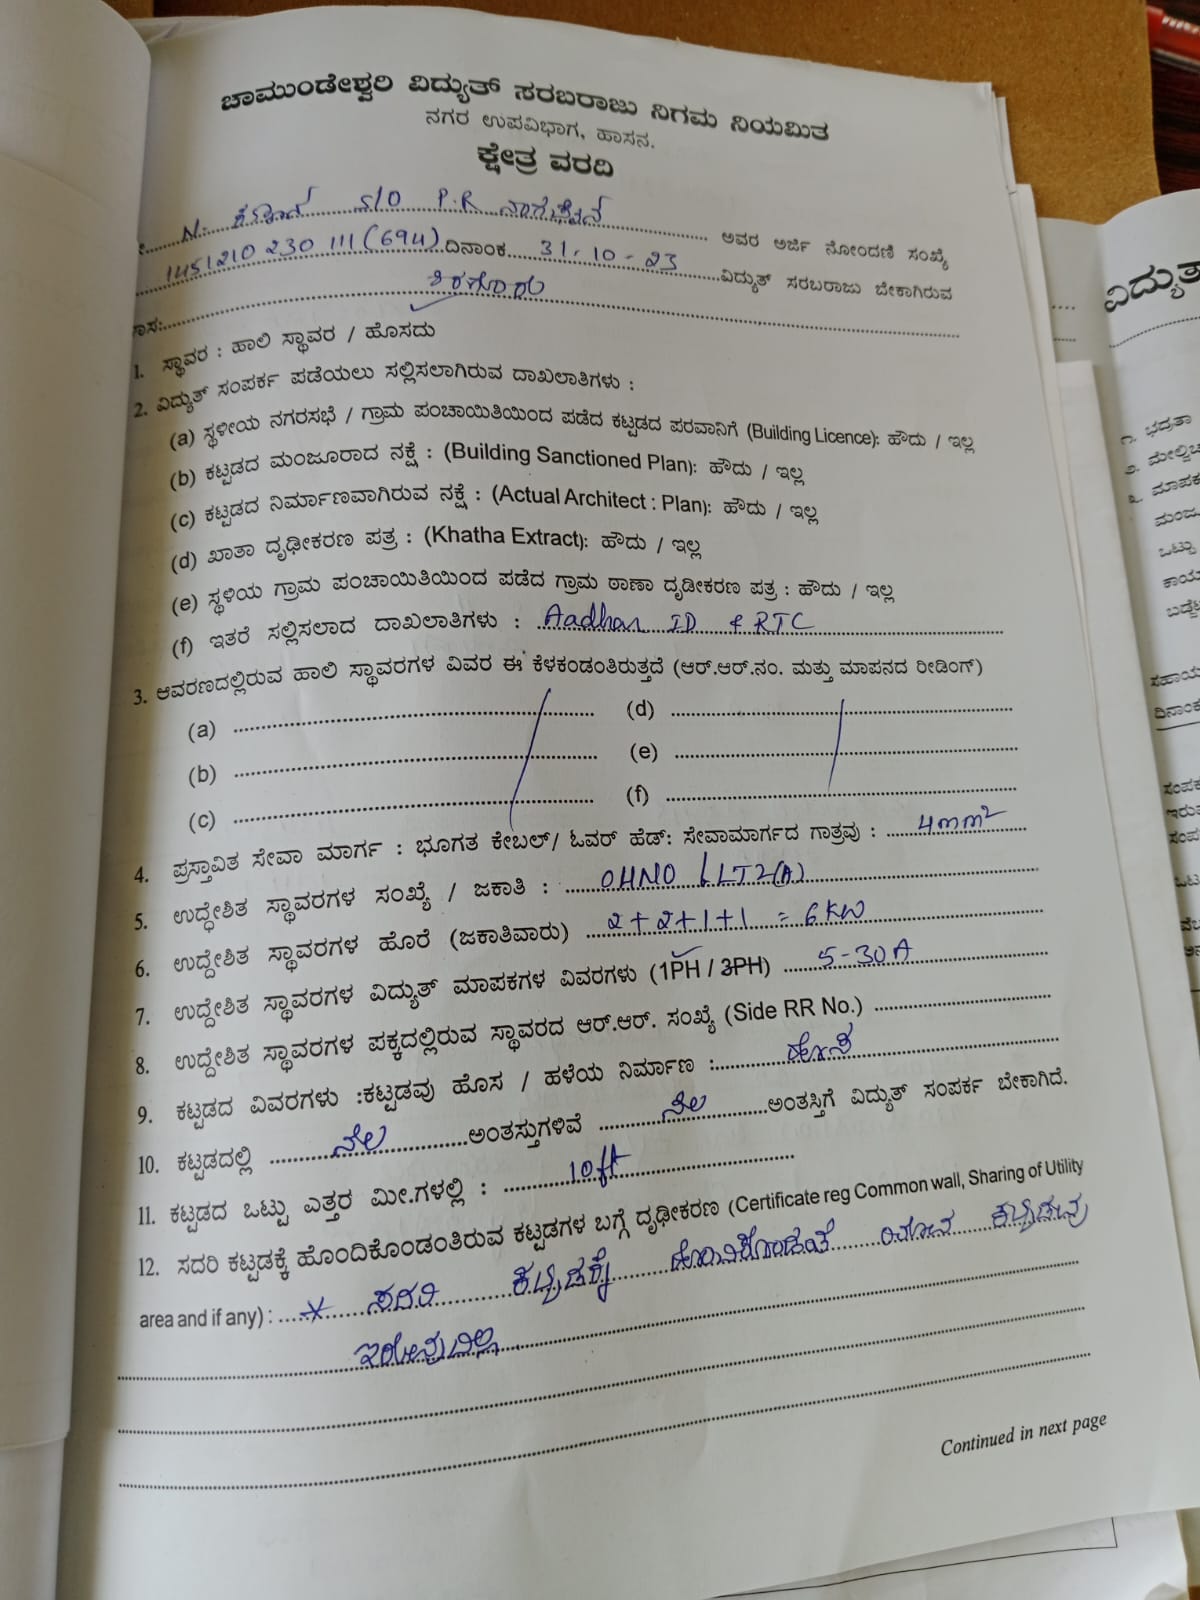 ಚಾಮುಂಡೇಶ್ವರಿ ವಿದ್ಯುತ್ ಸರಬರಾಜು ನಿಗಮ ನಿಯಮಿತ
ನಗರ ಉಪವಿಭಾಗ, ಹಾಸನ.
ಕ್ಷೇತ್ರ ವರದಿ
N. S/O P.R ಅವರ ಅರ್ಜಿ ನೋಂದಣಿ ಸಂಖ್ಯೆ
1451210 230 111 (694) ದಿನಾಂಕ 31.10-23 ವಿದ್ಯುತ್ ಸರಬರಾಜು ಬೇಕಾಗಿರುವ
1. ಸ್ಥಾವರ : ಹಾಲಿ ಸ್ಥಾವರ / ಹೊಸದು
2. ವಿದ್ಯುತ್ ಸಂಪರ್ಕ ಪಡೆಯಲು ಸಲ್ಲಿಸಲಾಗಿರುವ ದಾಖಲಾತಿಗಳು :
(a) ಸ್ಥಳೀಯ ನಗರಸಭೆ / ಗ್ರಾಮ ಪಂಚಾಯಿತಿಯಿಂದ ಪಡೆದ ಕಟ್ಟಡದ ಪರವಾನಿಗೆ (Building Licence): ಹೌದು / ಇಲ್ಲ
(b) ಕಟ್ಟಡದ ಮಂಜೂರಾದ ನಕ್ಷೆ : (Building Sanctioned Plan): ಹೌದು / ಇಲ್ಲ
(c) ಕಟ್ಟಡದ ನಿರ್ಮಾಣವಾಗಿರುವ ನಕ್ಷೆ : (Actual Architect : Plan): ಹೌದು / ಇಲ್ಲ
(d) ಖಾತಾ ದೃಢೀಕರಣ ಪತ್ರ : (Khatha Extract): ಹೌದು / ಇಲ್ಲ
(e) ಸ್ಥಳಿಯ ಗ್ರಾಮ ಪಂಚಾಯಿತಿಯಿಂದ ಪಡೆದ ಗ್ರಾಮ ಠಾಣಾ ದೃಡೀಕರಣ ಪತ್ರ : ಹೌದು / ಇಲ್ಲ
(f) ಇತರೆ ಸಲ್ಲಿಸಲಾದ ದಾಖಲಾತಿಗಳು : Aadhar ID & RTC
3. ಆವರಣದಲ್ಲಿರುವ ಹಾಲಿ ಸ್ಥಾವರಗಳ ವಿವರ ಈ ಕೆಳಕಂಡಂತಿರುತ್ತದೆ (ಆರ್.ಆರ್.ನಂ. ಮತ್ತು ಮಾಪನದ ರೀಡಿಂಗ್)
(a) (d)
(b) (e)
(c) (f)
4. ಪ್ರಸ್ತಾವಿತ ಸೇವಾ ಮಾರ್ಗ : ಭೂಗತ ಕೇಬಲ್/ ಓವರ್ ಹೆಡ್: ಸೇವಾಮಾರ್ಗದ ಗಾತ್ರವು : 4mm²
5. ಉದ್ಧೇಶಿತ ಸ್ಥಾವರಗಳ ಸಂಖ್ಯೆ / ಜಕಾತಿ : LT2(A)
6. ಉದ್ದೇಶಿತ ಸ್ಥಾವರಗಳ ಹೊರೆ (ಜಕಾತಿವಾರು) 2+2+1+1 = 6KW
7. ಉದ್ದೇಶಿತ ಸ್ಥಾವರಗಳ ವಿದ್ಯುತ್ ಮಾಪಕಗಳ ವಿವರಗಳು (1PH / 3PH) 5-30A
8. ಉದ್ದೇಶಿತ ಸ್ಥಾವರಗಳ ಪಕ್ಕದಲ್ಲಿರುವ ಸ್ಥಾವರದ ಆರ್.ಆರ್. ಸಂಖ್ಯೆ (Side RR No.)
9. ಕಟ್ಟಡದ ವಿವರಗಳು :ಕಟ್ಟಡವು ಹೊಸ / ಹಳೆಯ ನಿರ್ಮಾಣ : ಹೊಸ
10. ಕಟ್ಟಡದಲ್ಲಿ ನೆಲ ಅಂತಸ್ತುಗಳಿವೆ ನೆಲ ಅಂತಸ್ತಿಗೆ ವಿದ್ಯುತ್ ಸಂಪರ್ಕ ಬೇಕಾಗಿದೆ.
11. ಕಟ್ಟಡದ ಒಟ್ಟು ಎತ್ತರ ಮೀ.ಗಳಲ್ಲಿ : 10ft
12. ಸದರಿ ಕಟ್ಟಡಕ್ಕೆ ಹೊಂದಿಕೊಂಡಂತಿರುವ ಕಟ್ಟಡಗಳ ಬಗ್ಗೆ ದೃಢೀಕರಣ (Certificate reg Common wall, Sharing of Utility
area and if any) : * ಸದರಿ ಕಟ್ಟಡಕ್ಕೆ ಹೊಂದಿಕೊಂಡಂತೆ ಯಾವ ಕಟ್ಟಡವು
ಇರೋವುದಿಲ್ಲ
Continued in next page